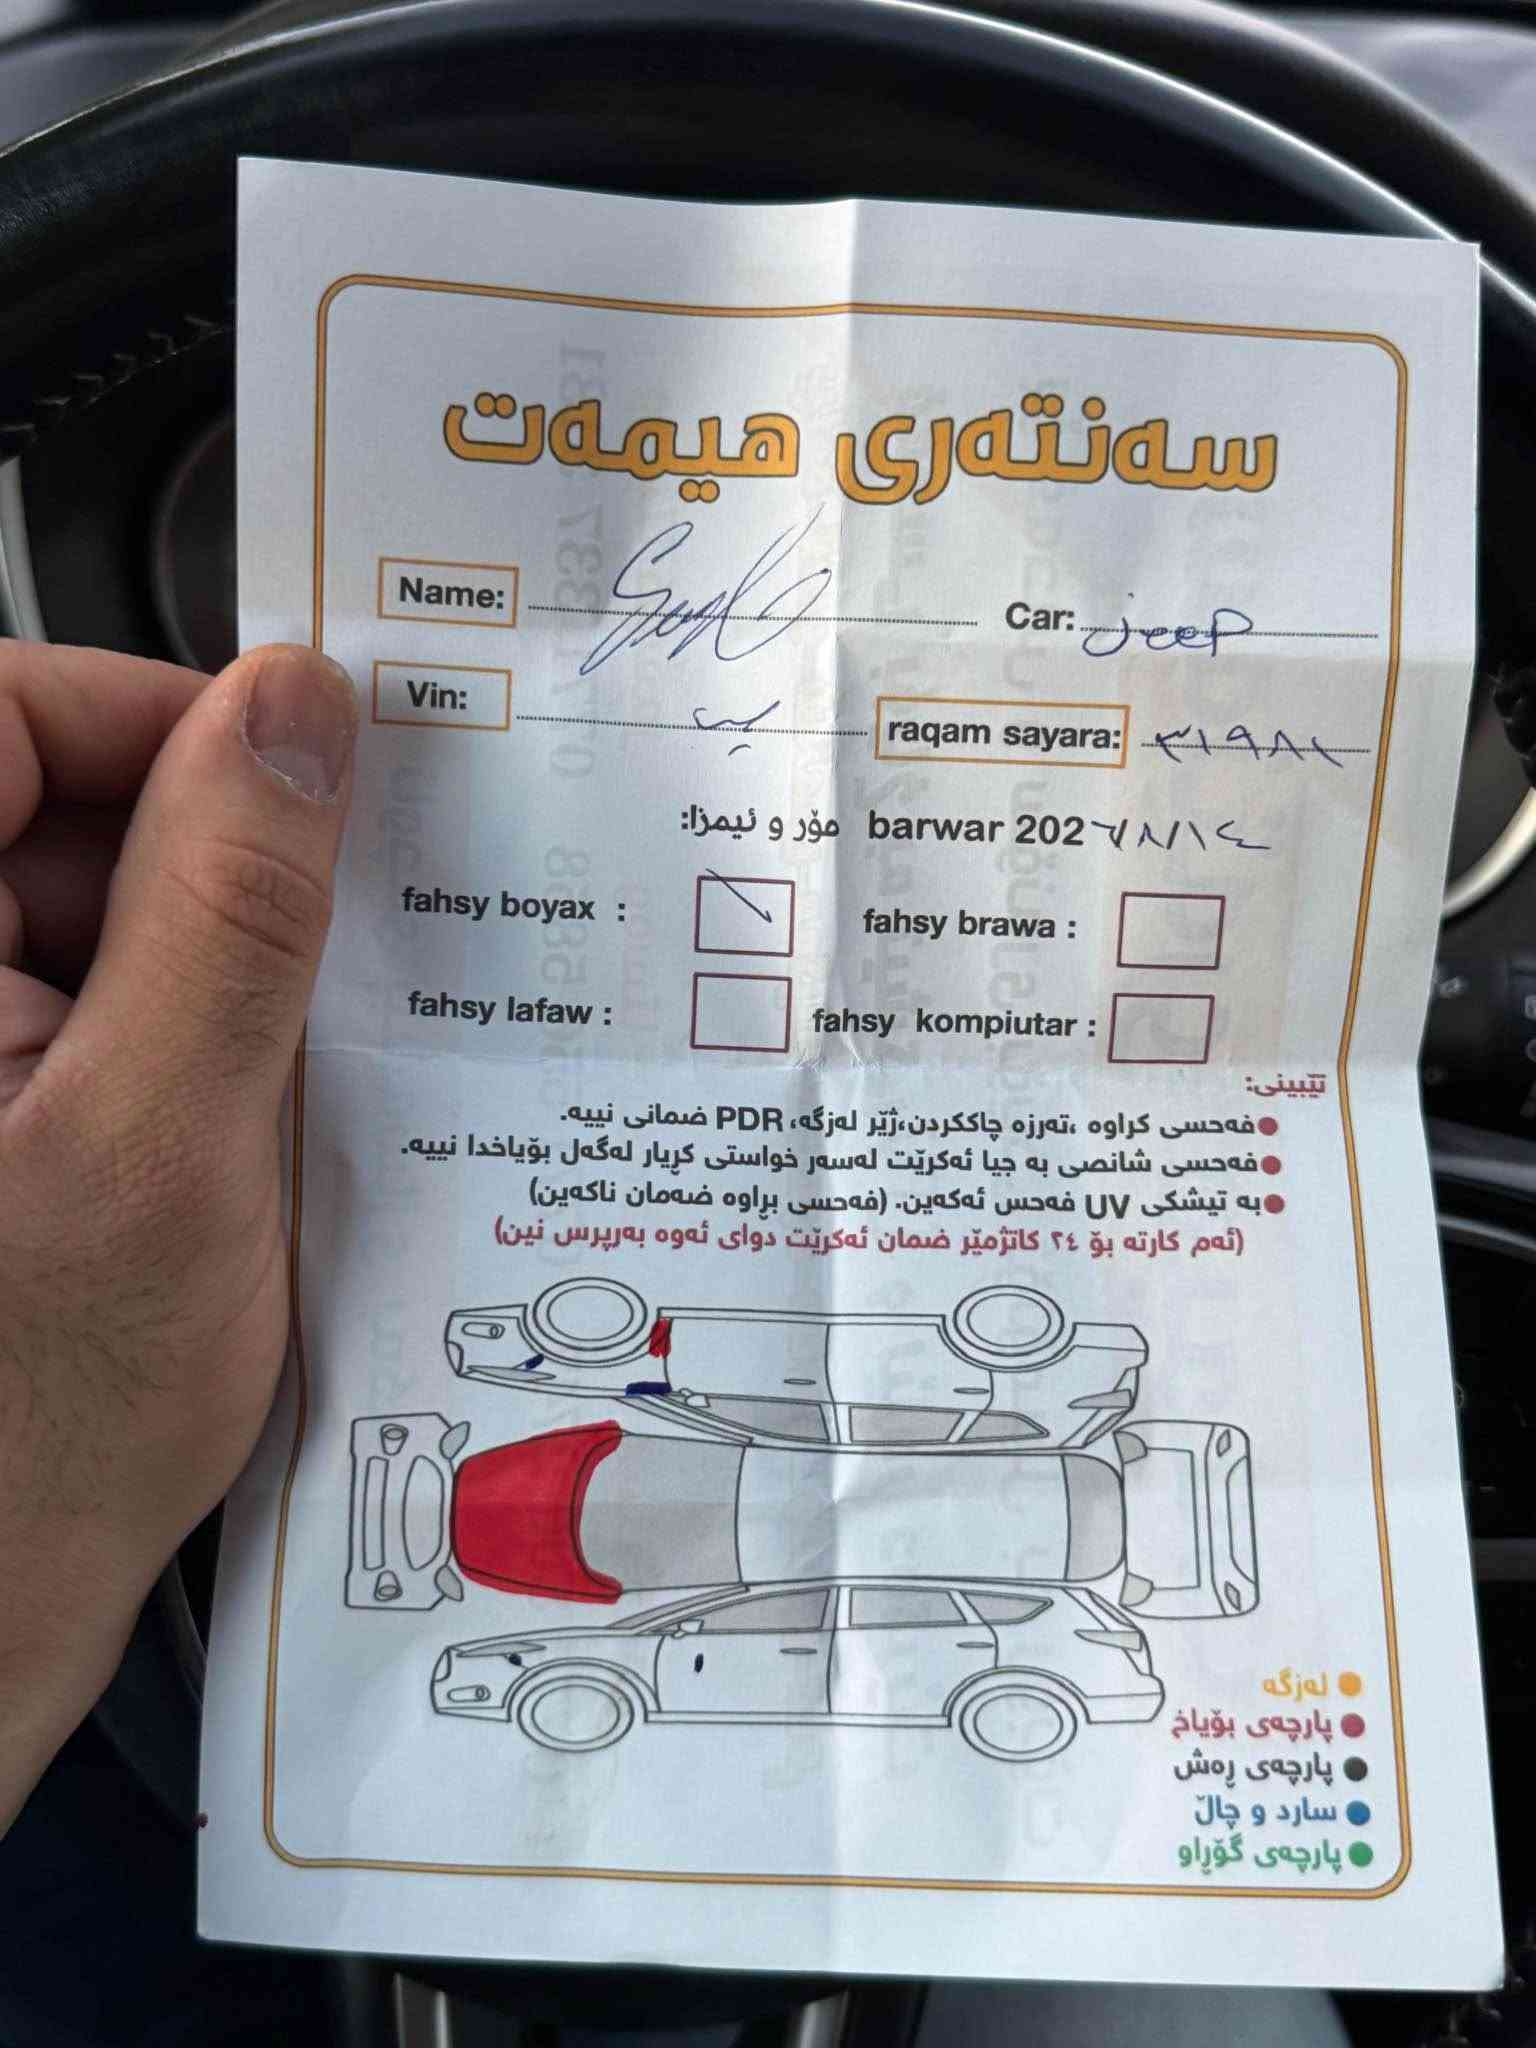 سەنتەری هیمەت
Name: Car: jeep
Vin: raqam sayara: ٣١٩٨١
مۆر و ئیمزا: barwar 202٦/٨/١٤
fahsy boyax : fahsy brawa :
fahsy lafaw : fahsy kompiutar :
تێبینی:
●فەحسی کراوە ،تەرزە چاککردن،ژێر لەزگە، PDR ضمانی نییە.
●فەحسی شانصی بە جیا ئەکرێت لەسەر خواستی کڕیار لەگەڵ بۆیاخدا نییە.
●بە تیشکی UV فەحس ئەکەین. (فەحسی بڕاوە ضەمان ناکەین)
(ئەم کارتە بۆ ٢٤ کاتژمێر ضمان ئەکرێت دوای ئەوە بەرپرس نین)
● لەزگە
● پارچەی بۆیاخ
● پارچەی ڕەش
● سارد و چاڵ
● پارچەی گۆڕاو